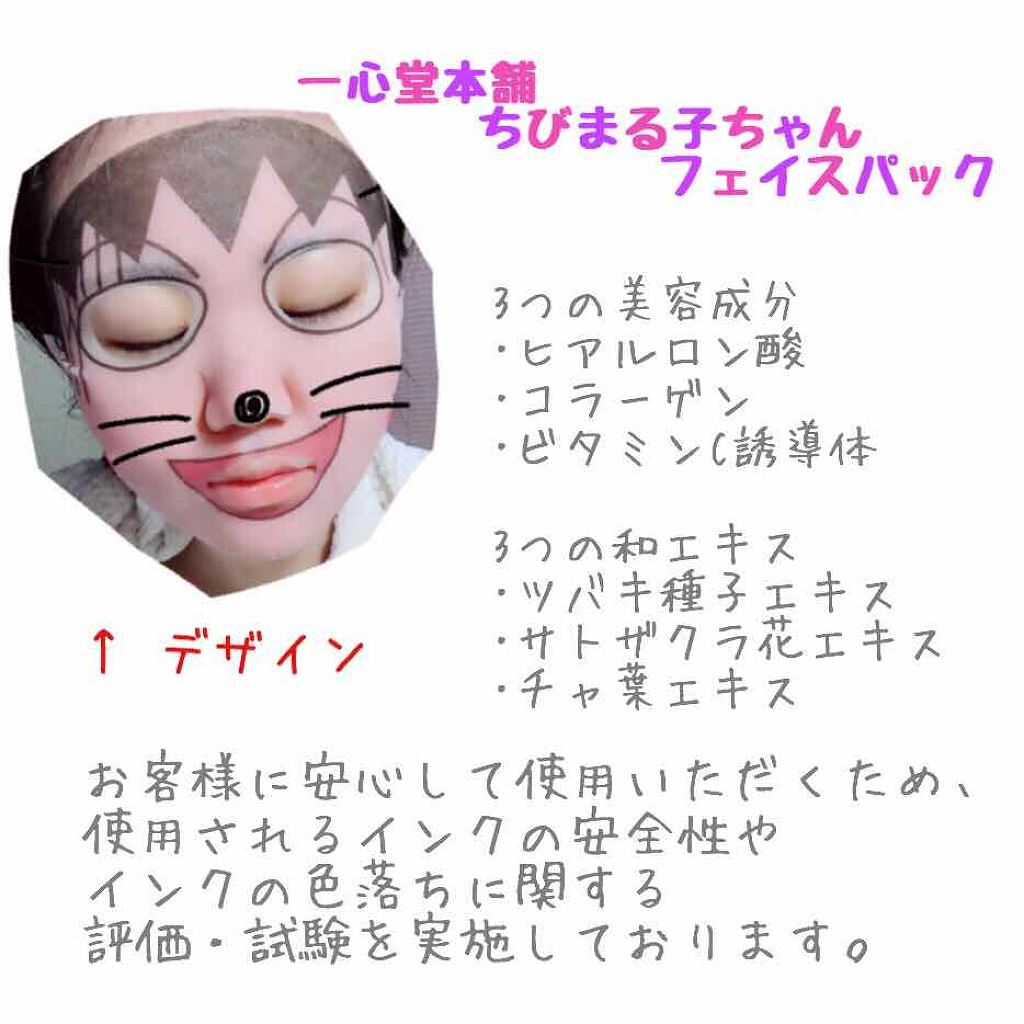 一心堂本舗
ちびまる子ちゃん
フェイスパック
3つの美容成分
・ヒアルロン酸
・コラーゲン
・ビタミンC誘導体
3つの和エキス
・ツバキ種子エキス
・サトザクラ花エキス
・チャ葉エキス
↑ デザイン
お客様に安心して使用いただくため、
使用されるインクの安全性や
インクの色落ちに関する
評価・試験を実施しております。